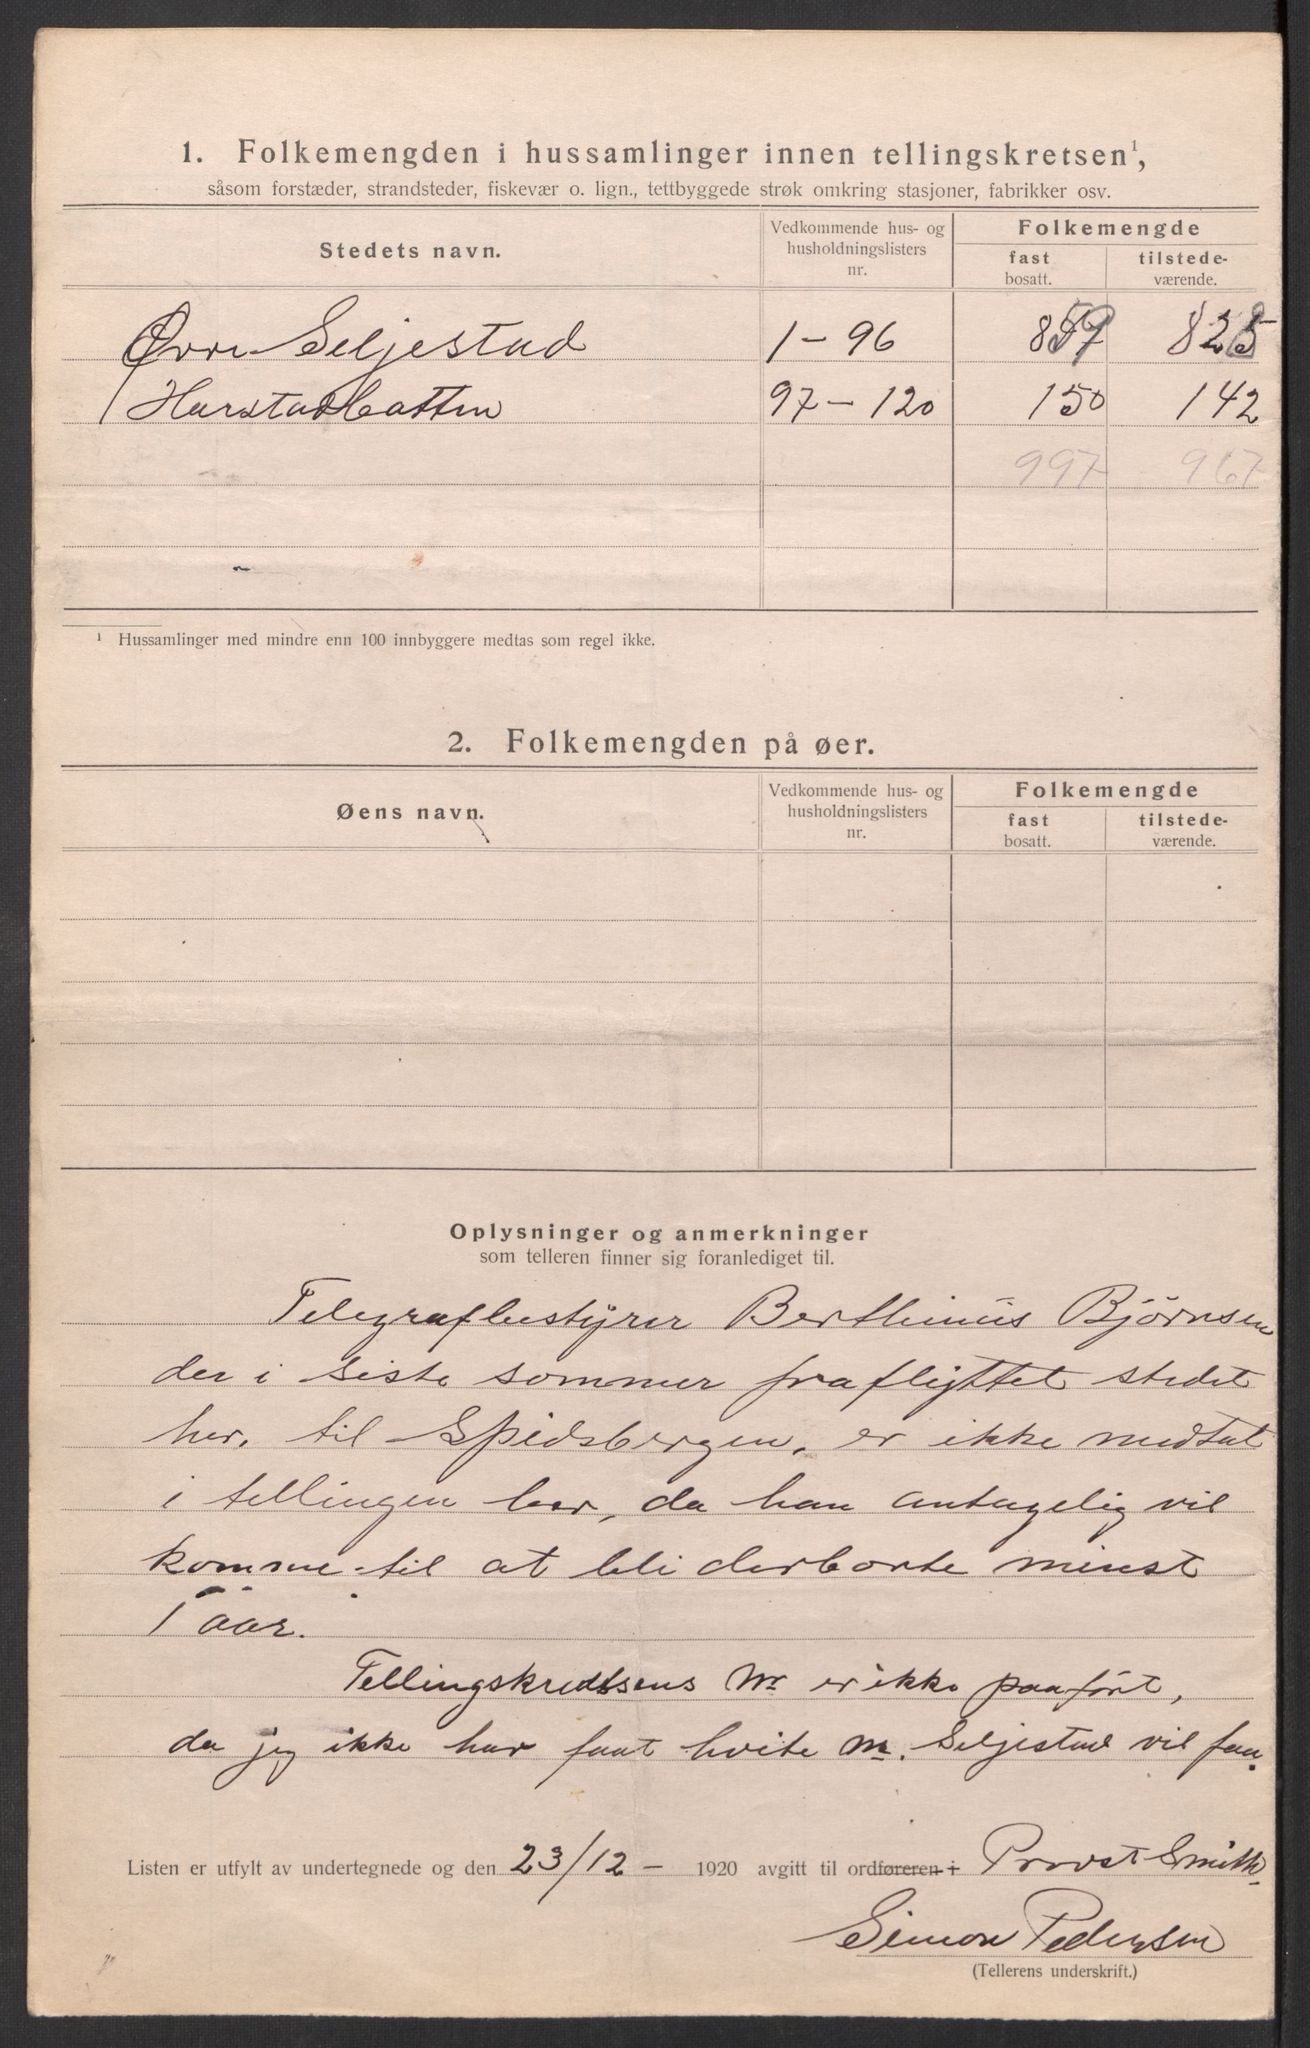 1. Folkemengden i hussamlinger innen tellingskretsen¹,
såsom forstæder, strandsteder, fiskevær o. lign., tettbyggede strøk omkring stasjoner, fabrikker osv.
Stedets navn. Vedkommende hus- og husholdningslisters nr. Folkemengde
fast bosatt. tilstede-værende.
Øvre Seljestad 1 - 96
Harstadbotten 97 - 120 150 142
997 967
¹ Hussamlinger med mindre enn 100 innbyggere medtas som regel ikke.
2. Folkemengden på øer.
Øens navn. Vedkommende hus- og husholdningslisters nr. Folkemengde
fast bosatt. tilstede-værende.
Oplysninger og anmerkninger
som telleren finner sig foranlediget til.
Telegrafbestyrer Berthinius Bjørnsen
der i siste sommer fraflyttet stedet
her, til Spidsbergen, er ikke medtat
i tellingen her, da han antagelig vil
komme til at bli derborte minst
1 aar.
Tellingskredsens Nr er ikke paaført,
da jeg ikke har faat hvite Nr. Seljestad vil faa.
Listen er utfylt av undertegnede og den 23/12 - 1920 avgitt til ordføreren i Provst Smith.
Simon Pedersen
(Tellerens underskrift.)